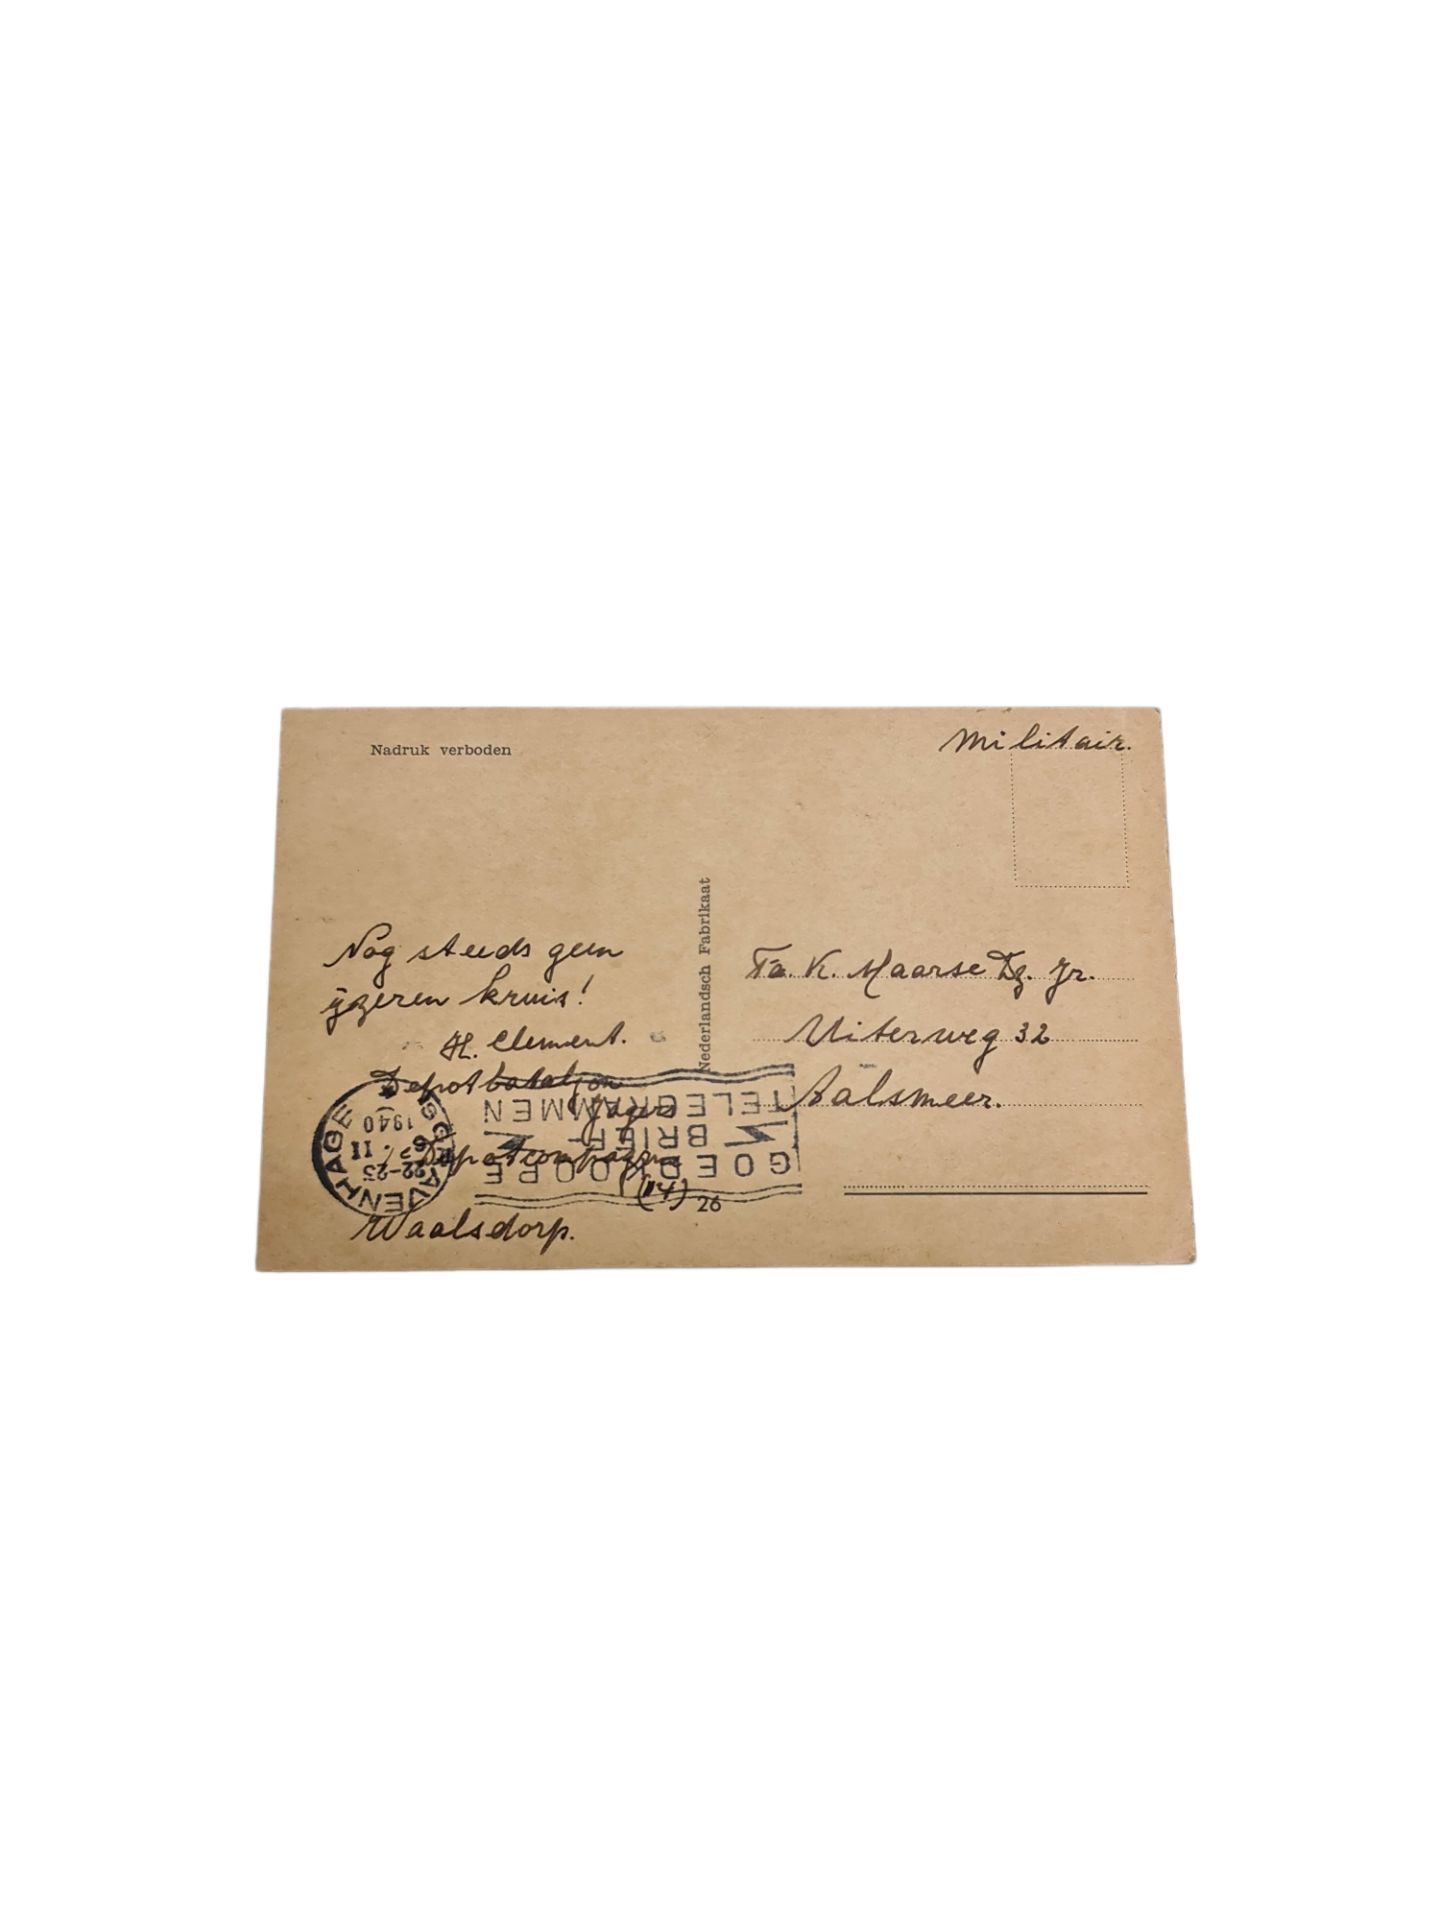 Nadruk verboden
Militair.
Nog steeds geen
ijzeren kruis!
H. Clement.
Depotbataljon
Jagers
Depotcompagnie
(14)
Waalsdorp.
Nederlandsch Fabrikaat
Fa. K. Maarse Dz. Jr.
Uiterweg 32
Aalsmeer.
'SGRAVENHAGE
22-23
6. II
1940
GOEDKOOPE
BRIEF-
TELEGRAMMEN
26